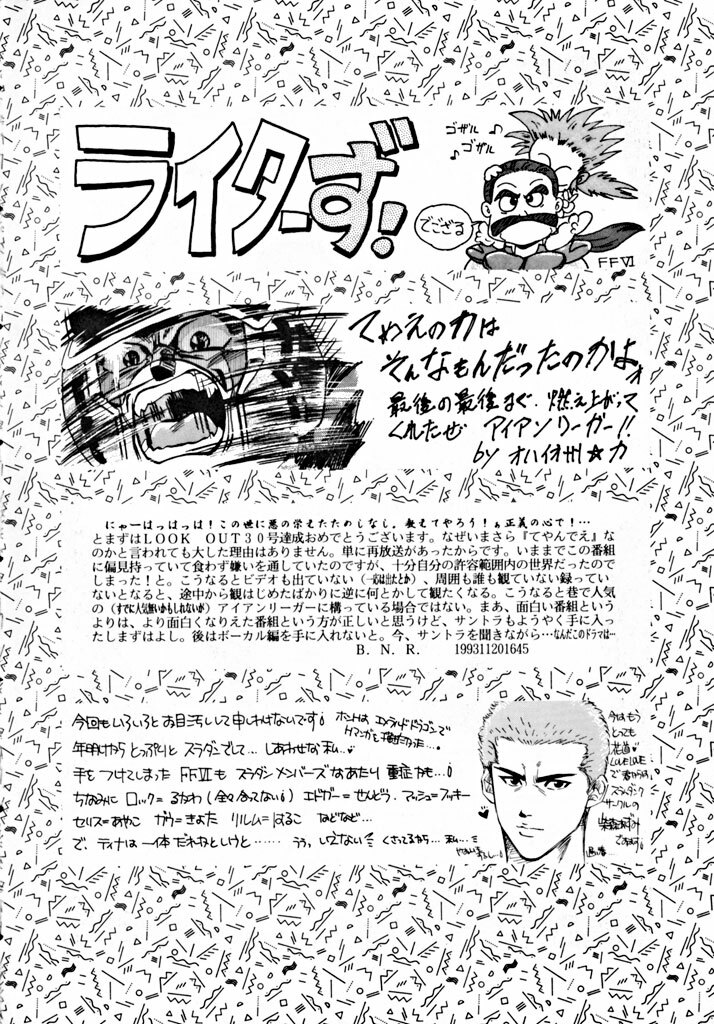 ライターず!
ゴザル♪
♪ゴザル
でござる
FFⅥ
てめえの力は
そんなもんだったのかよォ
最後の最後まで、燃え上がって
くれたぜ アイアンリーガー!!
by オハイオ州☆力
にゃーはっはっは!この世に悪の栄えたためしなし。教えてやろう!ぁ正義の心で!…
とまずはLOOK OUT30号達成おめでとうございます。なぜいまさら『てやんでえ』な
のかと言われても大した理由はありません。単に再放送があったからです。いままでこの番組
に偏見持っていて食わず嫌いを通していたのですが、十分自分の許容範囲内の世界だったので
しまった!と。こうなるとビデオも出ていない(一說出たとか)、周囲も誰も観ていない録ってい
ないとなると、途中から観はじめたばかりに逆に何とかして観たくなる。こうなると巷で人気
の(すでに人気無いかもしれないが)アイアンリーガーに構っている場合ではない。まあ、面白い番組という
よりは、より面白くなりえた番組という方が正しいと思うけど、サントラもようやく手に入っ
たしまずはよし。後はボーカル編を手に入れないと。今、サントラを聞きながら…なんだこのドラマは…
B.N.R. 199311201645
今回もいろいろとお目汚しで申しわけないです! ホントは エメラルドドラゴンで
マンガも描きたかった…。
年明けから とっぷりと スラダンでして… しあわせな私…。
手をつけてしまった FFⅥも スラダンメンバーズなあたり 重症かも…!
ちなみに ロック=るかわ(全々合ってない!) エドガー=せんどう. マッシュ=フッキー
セリス=あやこ ガウ=きよた リルム=はるこ などなど…
で、ティナは一体だれなというと…… うぅ、いえない くさってるから…私…
今はもう
とっても
花道♥
LOVE LOVE
で
スラムダンク
サークルの